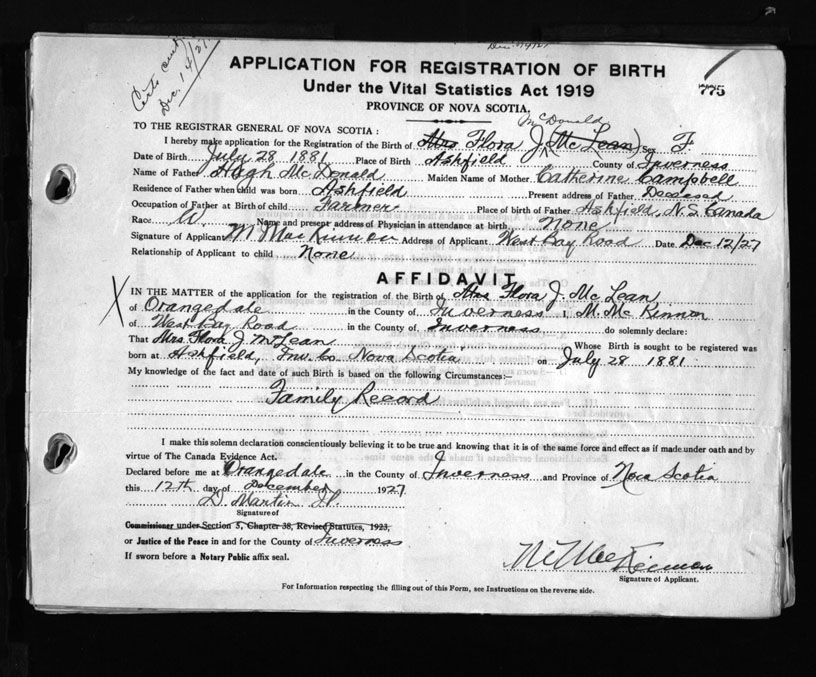 Dec. 14/27
Certs out
Dec. 14/27
APPLICATION FOR REGISTRATION OF BIRTH
Under the Vital Statistics Act 1919
775
PROVINCE OF NOVA SCOTIA.
TO THE REGISTRAR GENERAL OF NOVA SCOTIA:
McDonald
I hereby make application for the Registration of the Birth of Mrs Flora J. (McLean) Sex F
Date of Birth July 28 1881 Place of Birth Ashfield County of Inverness
Name of Father Hugh McDonald Maiden Name of Mother Catherine Campbell
Residence of Father when child was born Ashfield Present address of Father Deceased
Occupation of Father at Birth of child Farmer Place of birth of Father Ashfield, N.S. Canada
Race W. Name and present address of Physician in attendance at birth, None
Signature of Applicant M MacKinnon Address of Applicant West Bay Road Date Dec 12/27
Relationship of Applicant to child None
AFFIDAVIT
X IN THE MATTER of the application for the registration of the Birth of Mrs Flora J. McLean
of Orangedale in the County of Inverness I, M. McKinnon
of West Bay Road in the County of Inverness do solemnly declare:
That Mrs. Flora J. McLean Whose Birth is sought to be registered was
born at Ashfield, Inv. Co Nova Scotia on July 28 1881
My knowledge of the fact and date of such Birth is based on the following Circumstances:-
Family Record
I make this solemn declaration conscientiously believing it to be true and knowing that it is of the same force and effect as if made under oath and by
virtue of The Canada Evidence Act.
Declared before me at Orangedale in the County of Inverness and Province of Nova Scotia
this 12th day of December 1927
D. Martin JP.
Signature of
Commissioner under Section 5, Chapter 38, Revised Statutes, 1923,
or Justice of the Peace in and for the County of Inverness
If sworn before a Notary Public affix seal.
M MacKinnon
Signature of Applicant.
For Information respecting the filling out of this Form, see Instructions on the reverse side.